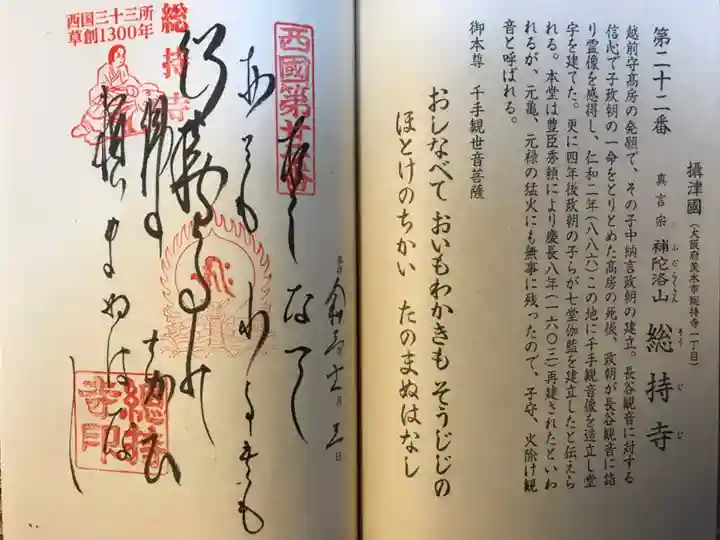 第二十二番
攝津國（大阪府茨木市総持寺一丁目）
真言宗 補陀洛山 総持寺
ふだらくさん
そうじじ
越前守髙房の発願で、その子中納言政朝の建立。長谷観音に対する
信心で子政朝の一命をとりとめた高房の死後、政朝が長谷観音に詣
り霊像を感得し、仁和二年（八八六）この地に千手観音像を造立し堂
字を建てた。更に四年後政朝の子らが七堂伽藍を建立したと伝えら
れる。本堂は豊臣秀頼により慶長八年（一六〇三）再建されたといわ
れるが、元亀、元禄の猛火にも無事に残ったので、子守、火除け観
音と呼ばれる。
御本尊 千手観世音菩薩
おしなべて おいもわかきも そうじじの
ほとけのちかい たのまぬはなし
西國第廿二番
西国三十三所
草創1300年
総持寺
総持寺印